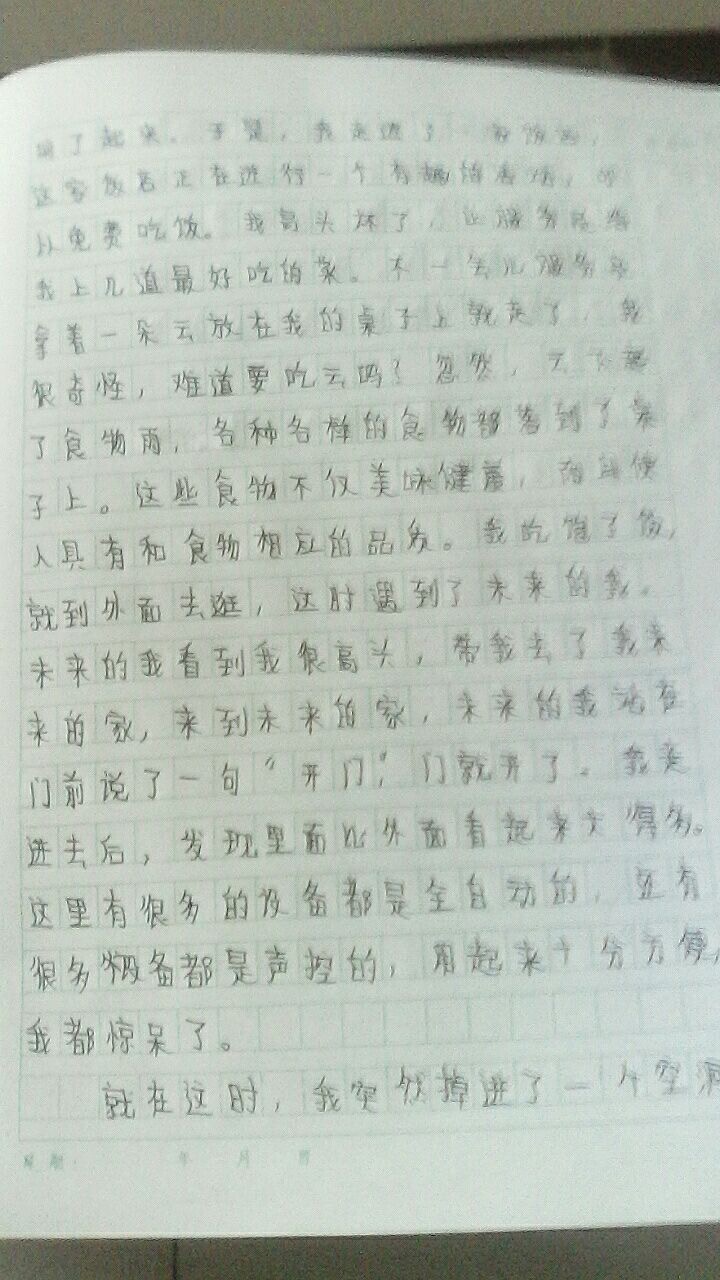 了起来。于是，我走进了一家饭店，
这家饭店正在进行一个有趣的活动，可
以免费吃饭。我高头坏了，让服务员给
我上几道最好吃的菜。不一会儿服务员
拿着一朵云放在我的桌子上就走了，我
很奇怪，难道要吃云吗？忽然，天下起
了食物雨，各种各样的食物都落到了桌
子上。这些食物不仅美味健康，而且使
人具有和食物相应的品质。我吃饱了饭，
就到外面去逛，这时遇到了未来的我。
未来的我看到我很高头，带我去了我未
来的家，来到未来的家，未来的我站在
门前说了一句“开门”，门就开了。我走
进去后，发现里面比外面看起来大得多。
这里有很多的设备都是全自动的，还有
很多设备都是声控的，用起来十分方便，
我都惊呆了。
就在这时，我突然掉进了一个空洞
星期： 年 月 日